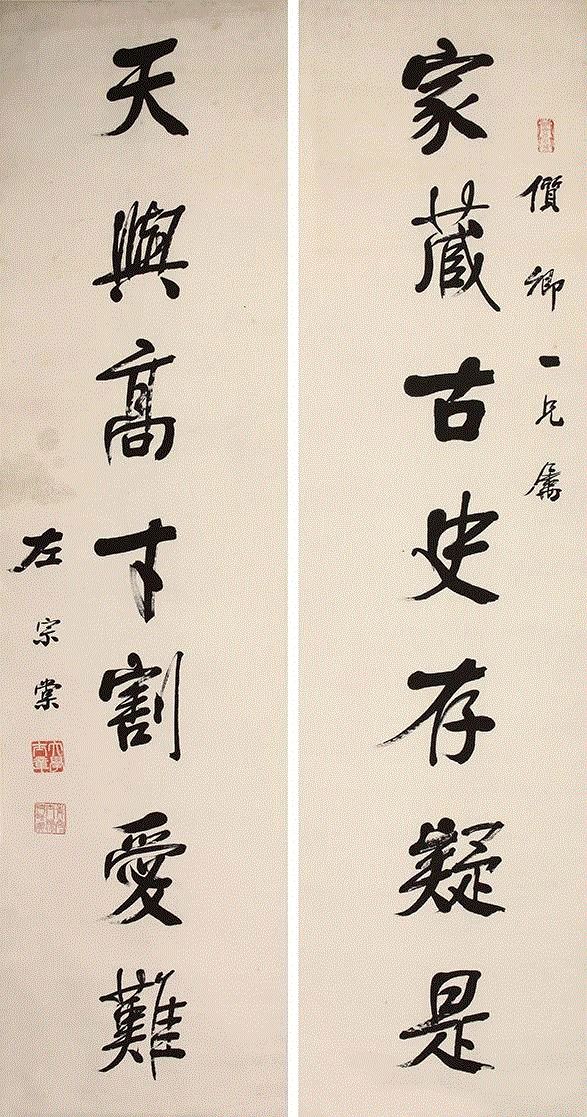 儥卿一兄屬
家藏古史存疑是
天與高才割愛難
左宗棠
大學士章